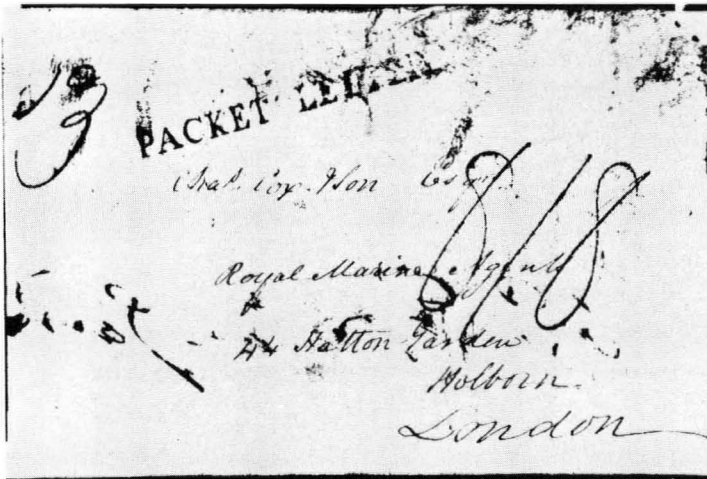 3
PACKET LETTER
Chas. Cox & Son Esqr.
8/8
Royal Marine Agents
44 Hatton Garden
Holborn
London